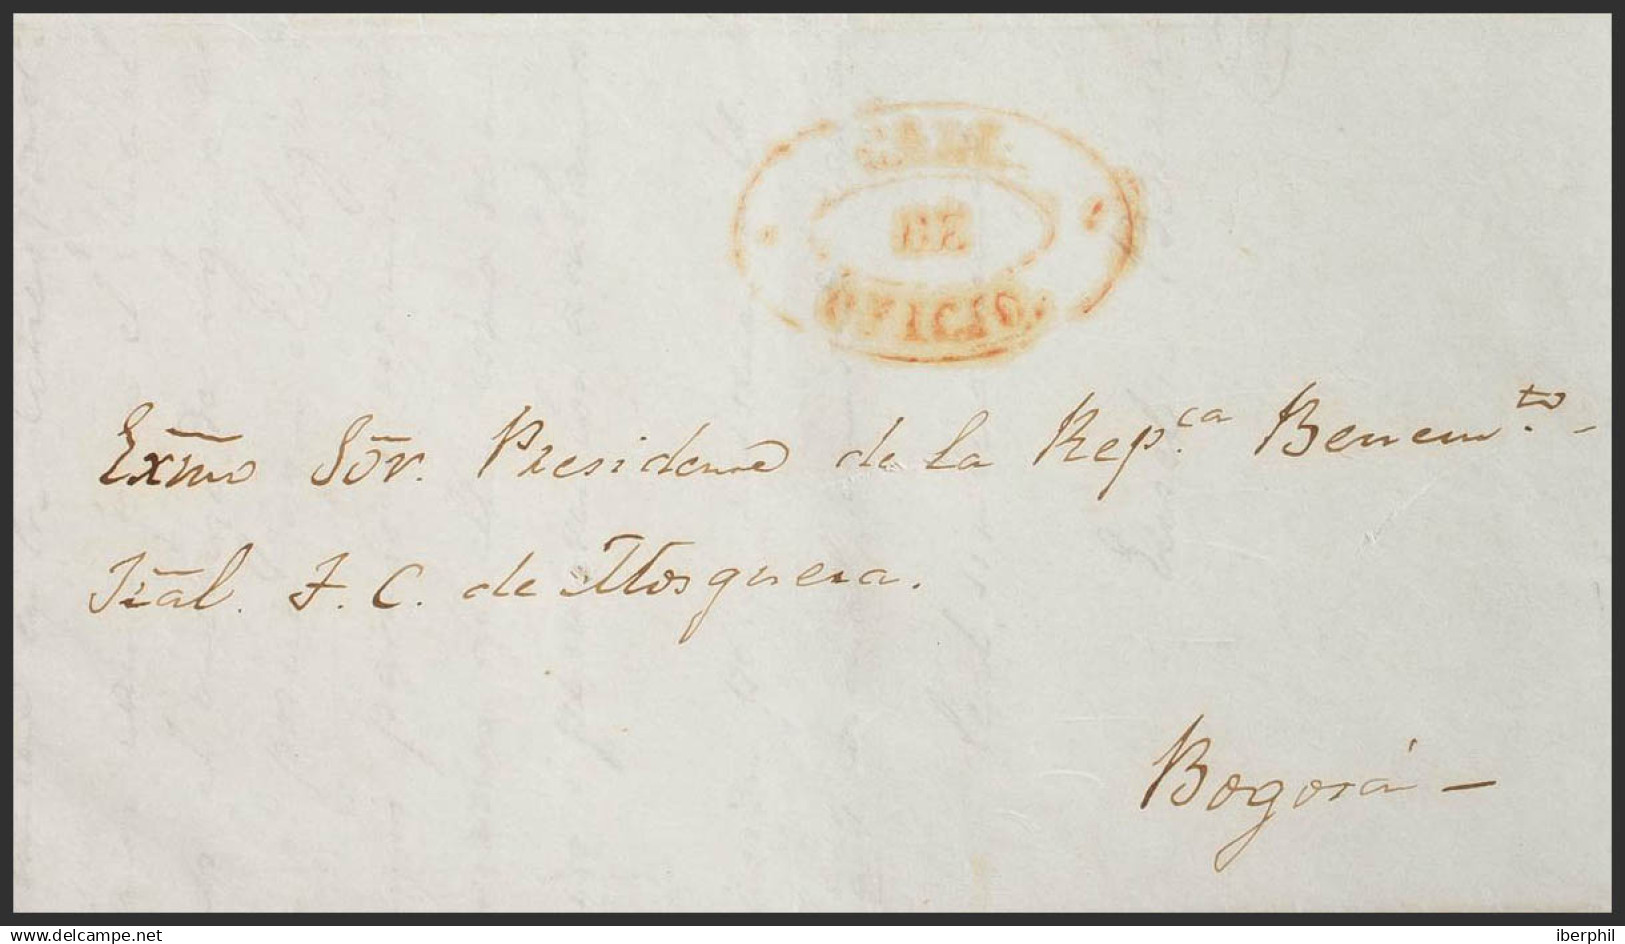 CALI
DE
OFICIO.
Exmo Sōr. Presidente de la Rep.ca Benem.to -
Jral. T. C. de Mosquera.
Bogotá -
www.delcampe.net
iberphil